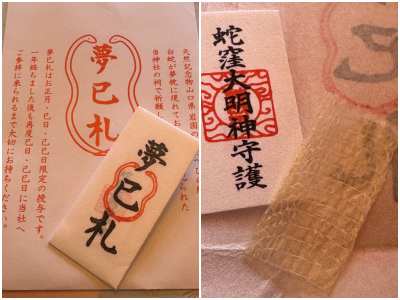 天然記念物山口県岩国の
白蛇が夢枕に現れてお
当神社の祠で祈願し
られた
夢巳札
夢巳札はお正月・巳日・己巳日限定の授与です。
一年経ちました後も再度巳日・己巳日に当社へ
ご参拝に来られるまで大切にお持ちください。
夢巳札
蛇窪大明神守護